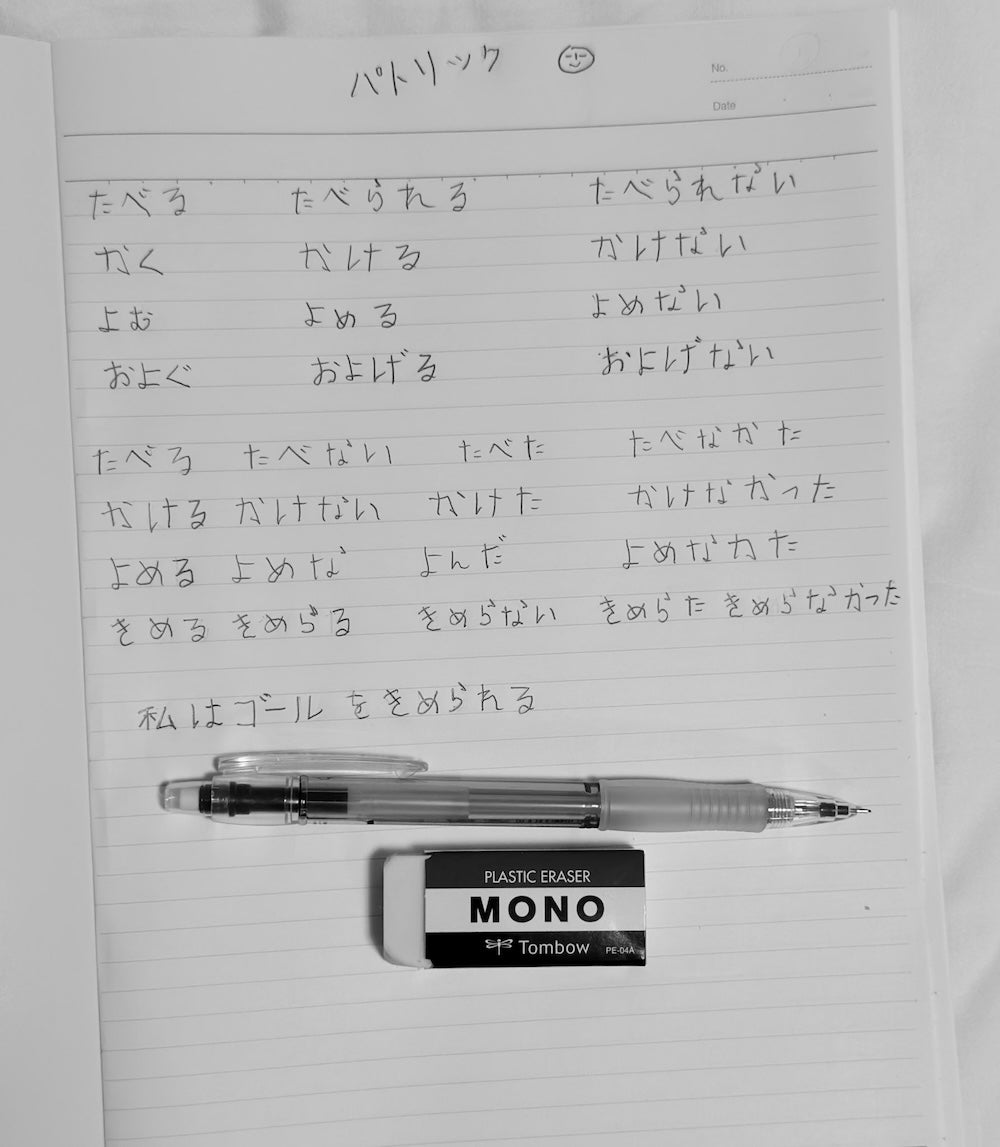 パトリック
No.
Date
たべる たべられる たべられない
かく かける かけない
よむ よめる よめない
およぐ およげる およげない
たべる たべない たべた たべなかた
かける かけない かけた かけなかった
よめる よめな よんだ よめなかた
きめる きめらる きめらない きめらた きめらなかった
私はゴールをきめられる
PLASTIC ERASER
MONO
Tombow PE-04A